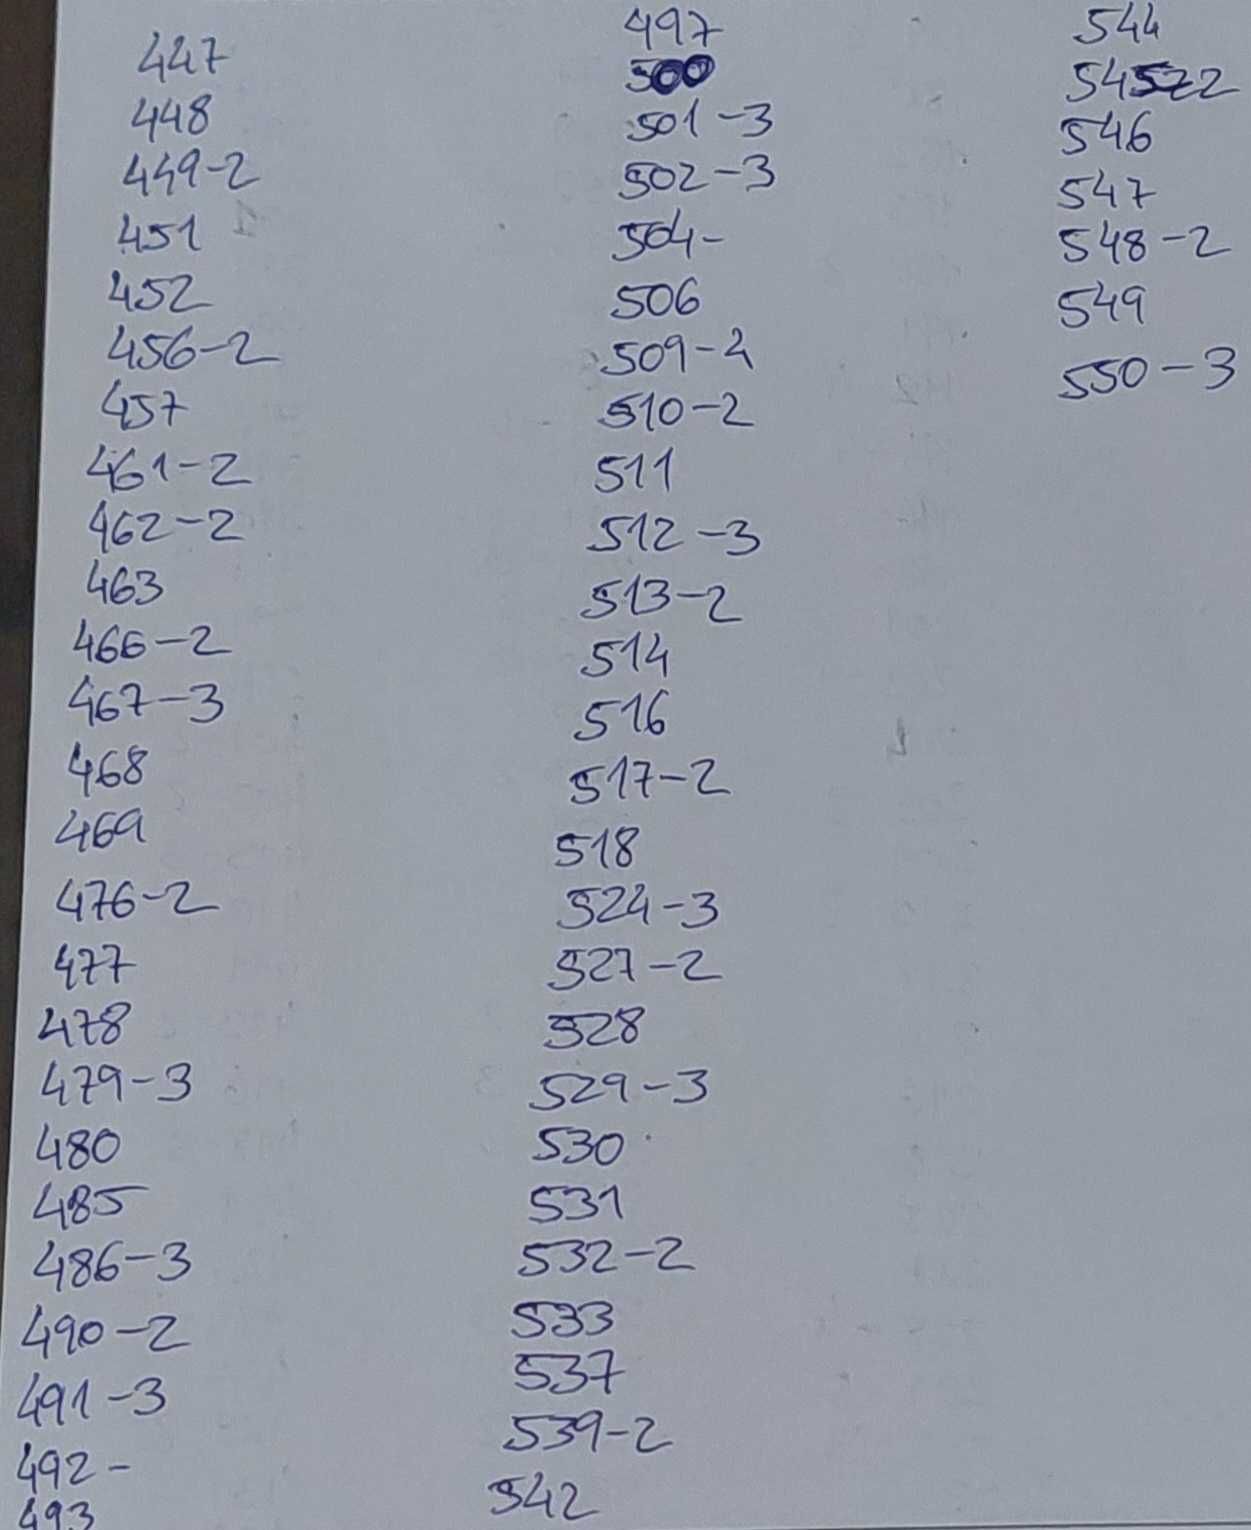 447
448
449-2
451
452
456-2
457
461-2
462-2
463
466-2
467-3
468
469
476-2
477
478
479-3
480
485
486-3
490-2
491-3
492-
493
497
500
501-3
502-3
504-
506
509-4
510-2
511
512-3
513-2
514
516
517-2
518
524-3
527-2
528
529-3
530
531
532-2
533
537
539-2
542
544
546
547
548-2
549
550-3